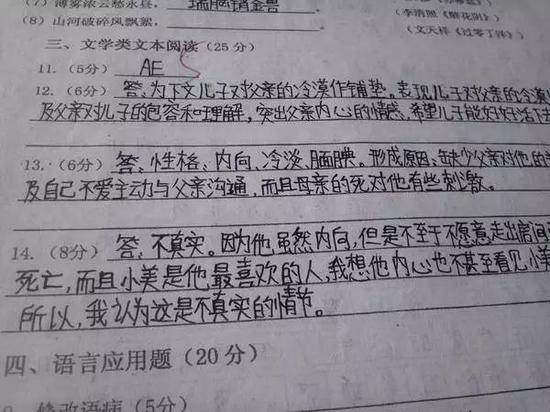 (7) 薄雾浓云愁永昼, 瑞脑销金兽 (李清照《醉花阴》)
(8) 山河破碎风飘絮, (文天祥《过零丁洋》)
三、文学类文本阅读(25分)
11. (5分) AE
12. (6分) 答、为下文儿子对父亲的冷漠作铺垫。表现儿子对父亲的冷漠以
及父亲对儿子的包容和理解,突出父亲内心的情感、希望儿子能好好活下去
13. (6分) 答、性格、内向、冷淡、腼腆。形成原因、缺少父亲对他的
及自己不爱主动与父亲沟通,而且母亲的死对他有些刺激。
14. (8分) 答、不真实。因为他虽然内向,但是不至于不愿意走出房间
死亡,而且小美是他最喜欢的人,我想他内心也不甚至看见小美
所以,我认为这是不真实的情节。
四、语言应用题(20分)
修改语病(5分)